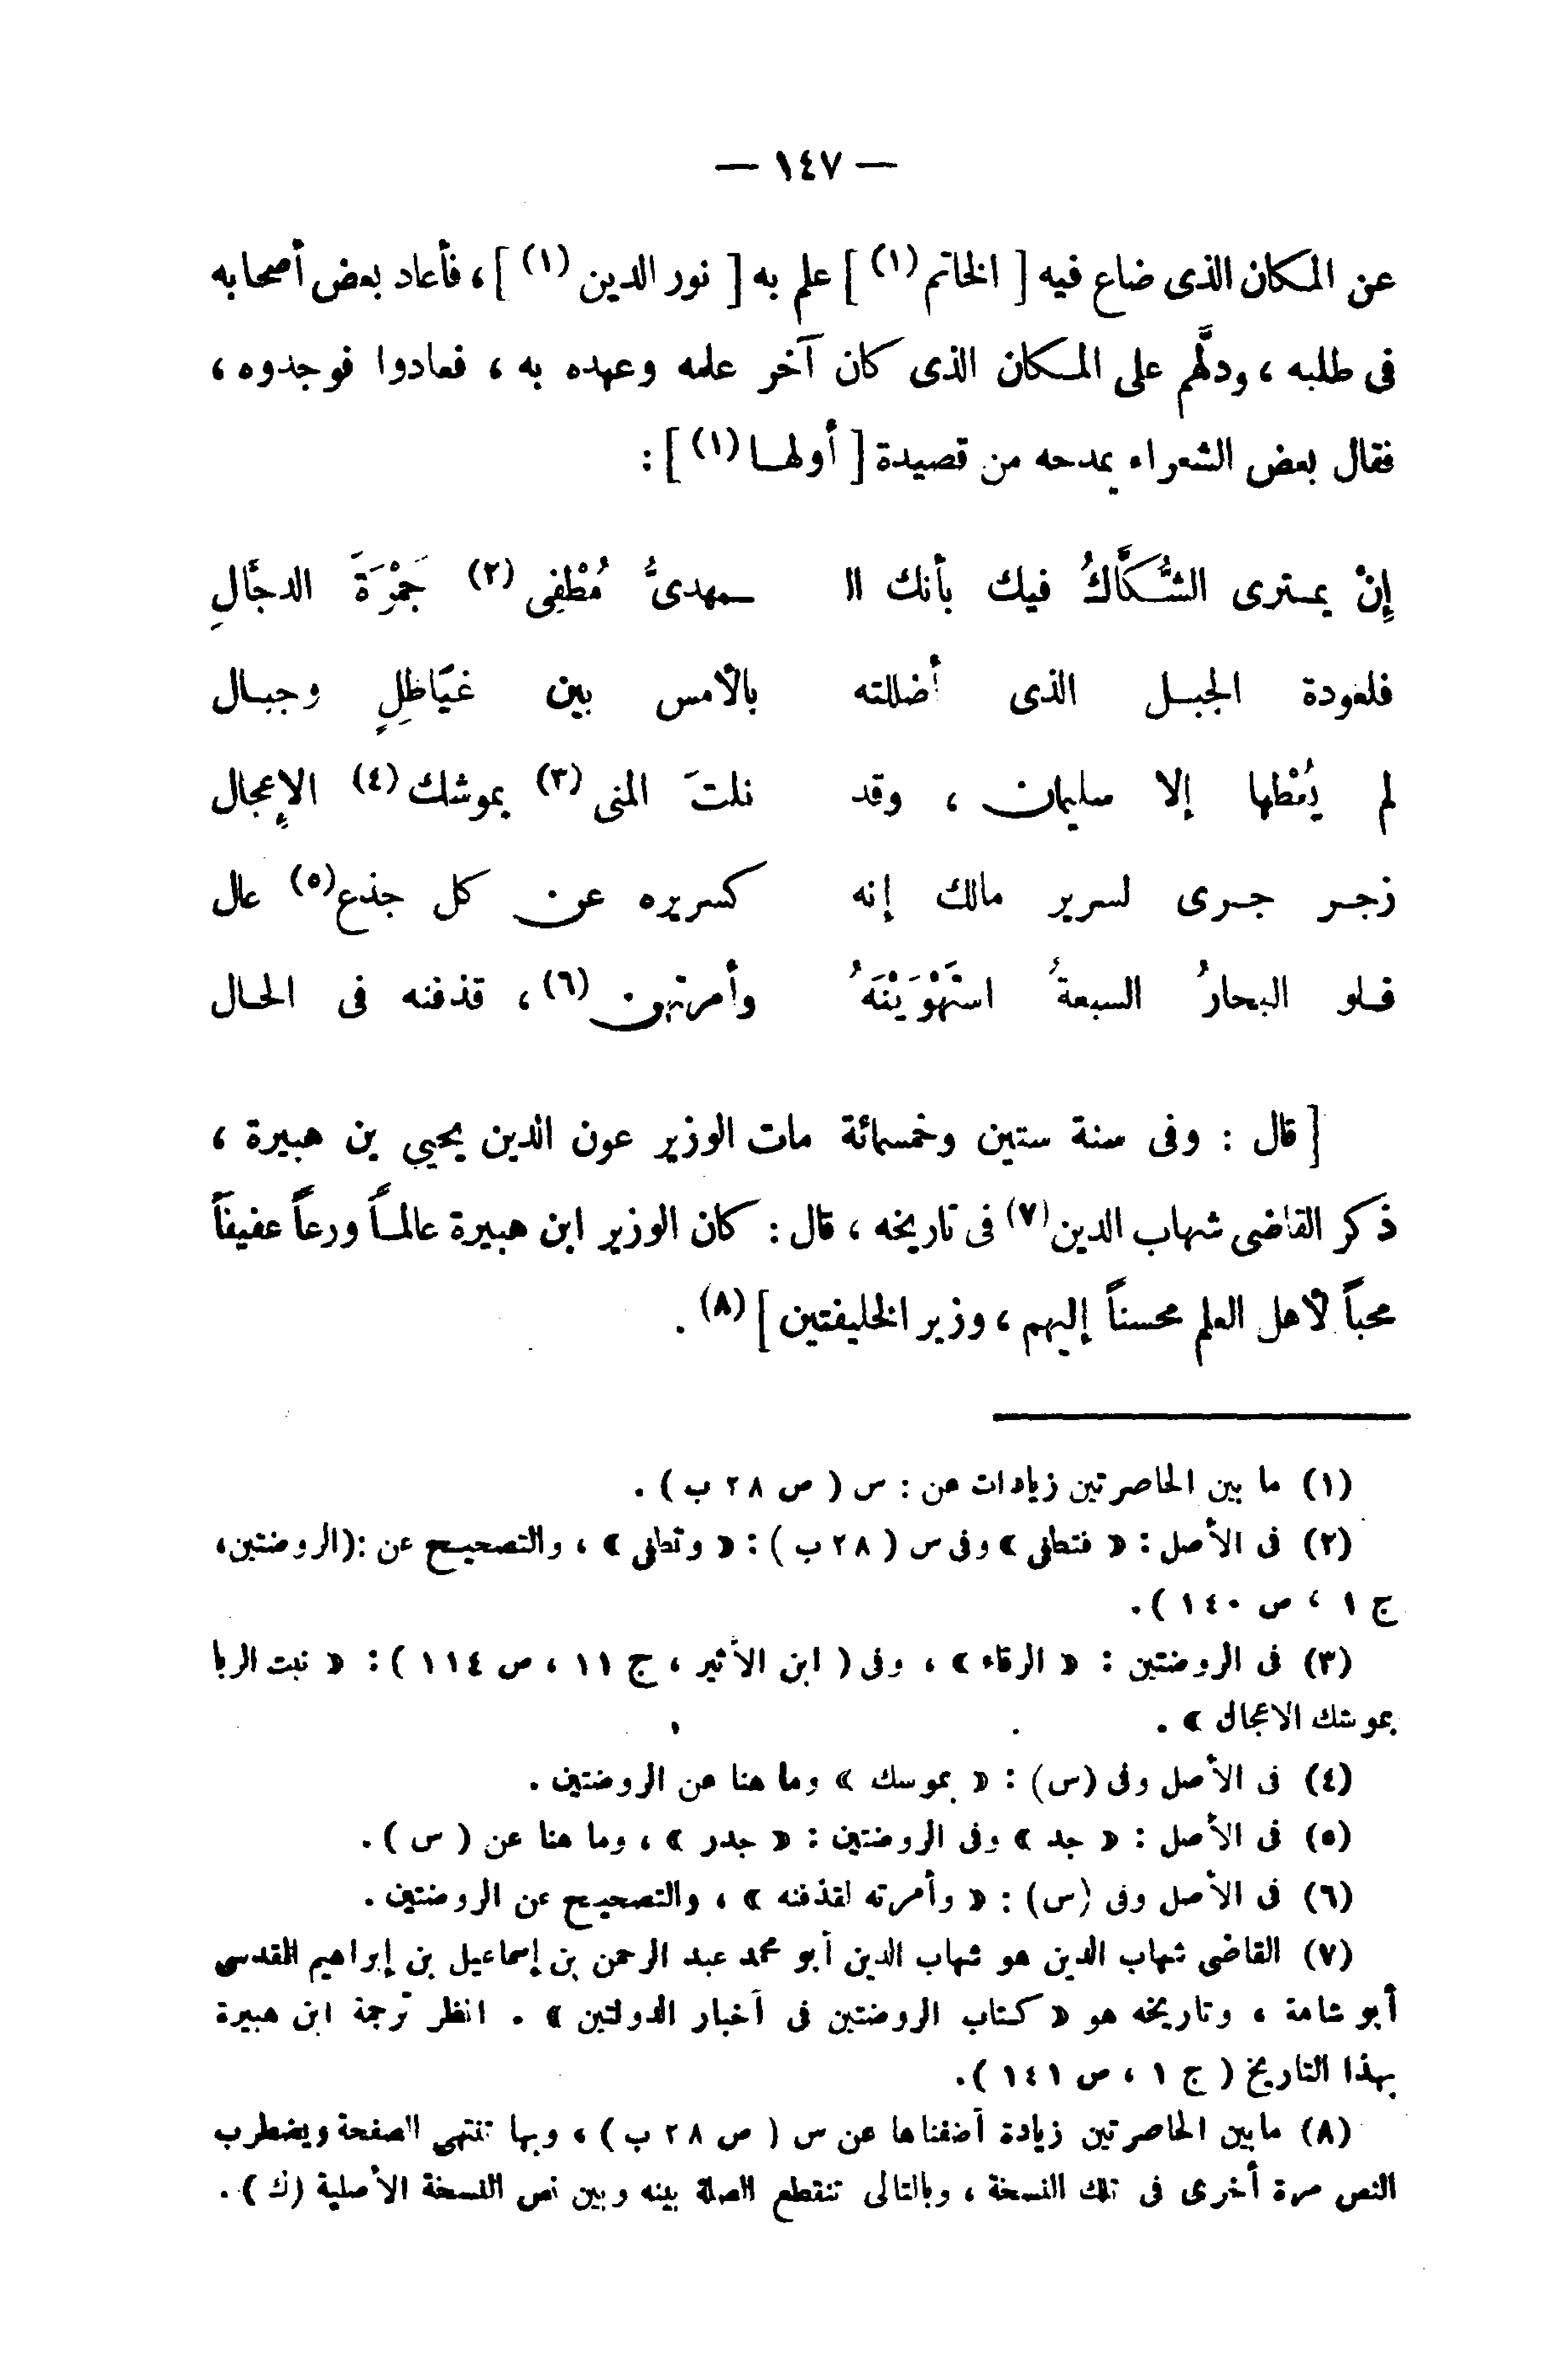 — ١٤٧ —
عن المكان الذى ضاع فيه [ الخاتم (١) ] علم به [ نور الدين (١) ] ، فأعاد بعض أصحابه
فى طلبه ، ودلَّهم على المكان الذى كان آخر علمه وعهده به ، فعادوا فوجدوه ،
فقال بعض الشعراء يمدحه من قصيدة [ أولها (١) ] :
إِنْ يمترى الشُّكَّاكُ فيك بأنك الـ ـمهدىُّ مُطْفِى (٢) جَمْرَةَ الدجَّالِ
فلعودة الجبل الذى أضللته بالأمس بين غيَاطلٍ وجبال
لم يُعْطها إلا سليمان ، وقد نلتَ المنى (٣) بموشك (٤) الإعجال
زجر جرى لسرير مالك إنه كسريره عن كل جذع (٥) عال
فلو البحارُ السبعةُ استَهْوَيْنَهُ وأمرتهن (٦) ، قذفنه فى الحال
[ قال : وفى سنة ستين وخمسمائة مات الوزير عون الدين يحيي بن هبيرة ،
ذكر القاضى شهاب الدين (٧) فى تاريخه ، قال : كان الوزير ابن هبيرة عالماً ورعاً عفيفاً
محباً لأهل العلم محسناً إليهم ، وزير الخليفتين ] (٨) .
(١) ما بين الحاصرتين زيادات عن : س ( ص ٢٨ ب ) .
(٢) فى الأصل : « فتطفى » وفى س ( ٢٨ ب ) : « وتطفى » ، والتصحيح عن : (الروضتين،
ج ١ ، ص ١٤٠ ) .
(٣) فى الروضتين : « الرقاء » ، وفى ( ابن الأثير ، ج ١١ ، ص ١١٤ ) : « نبت الربا
بموشك الاعجال » .
(٤) فى الأصل وفى (س) : « بموسك » وما هنا عن الروضتين .
(٥) فى الأصل : « جد » وفى الروضتين : « جدر » ، وما هنا عن ( س ) .
(٦) فى الأصل وفى (س) : « وأمرته لقذفنه » ، والتصحيح عن الروضتين .
(٧) القاضى شهاب الدين هو شهاب الدين أبو محمد عبد الرحمن بن إسماعيل بن إبراهيم المقدسى
أبو شامة ، وتاريخه هو « كتاب الروضتين فى أخبار الدولتين » . انظر ترجمة ابن هبيرة
بهذا التاريخ ( ج ١ ، ص ١٤١ ) .
(٨) مابين الحاصرتين زيادة أضفناها عن س ( ص ٢٨ ب ) ، وبها تنتهى الصفحة ويضطرب
النص مرة أخرى فى تلك النسخة ، وبالتالى تنقطع الصلة بينه وبين نص النسخة الأصلية (ك) .